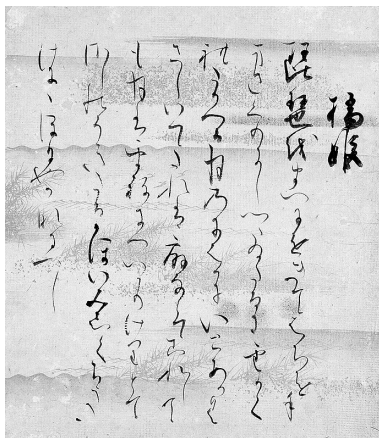 橋姫
琵琶をまへにをきてはちを手
まさくりにしつゝゐたるに雲かく
れたりつる月のにはかにいとあかく
さしいてたれは扇ならてこれして
も月はまねきつへかりけりとて
さしのそきたるかほいみしくらうた
けににほひやかなるへし